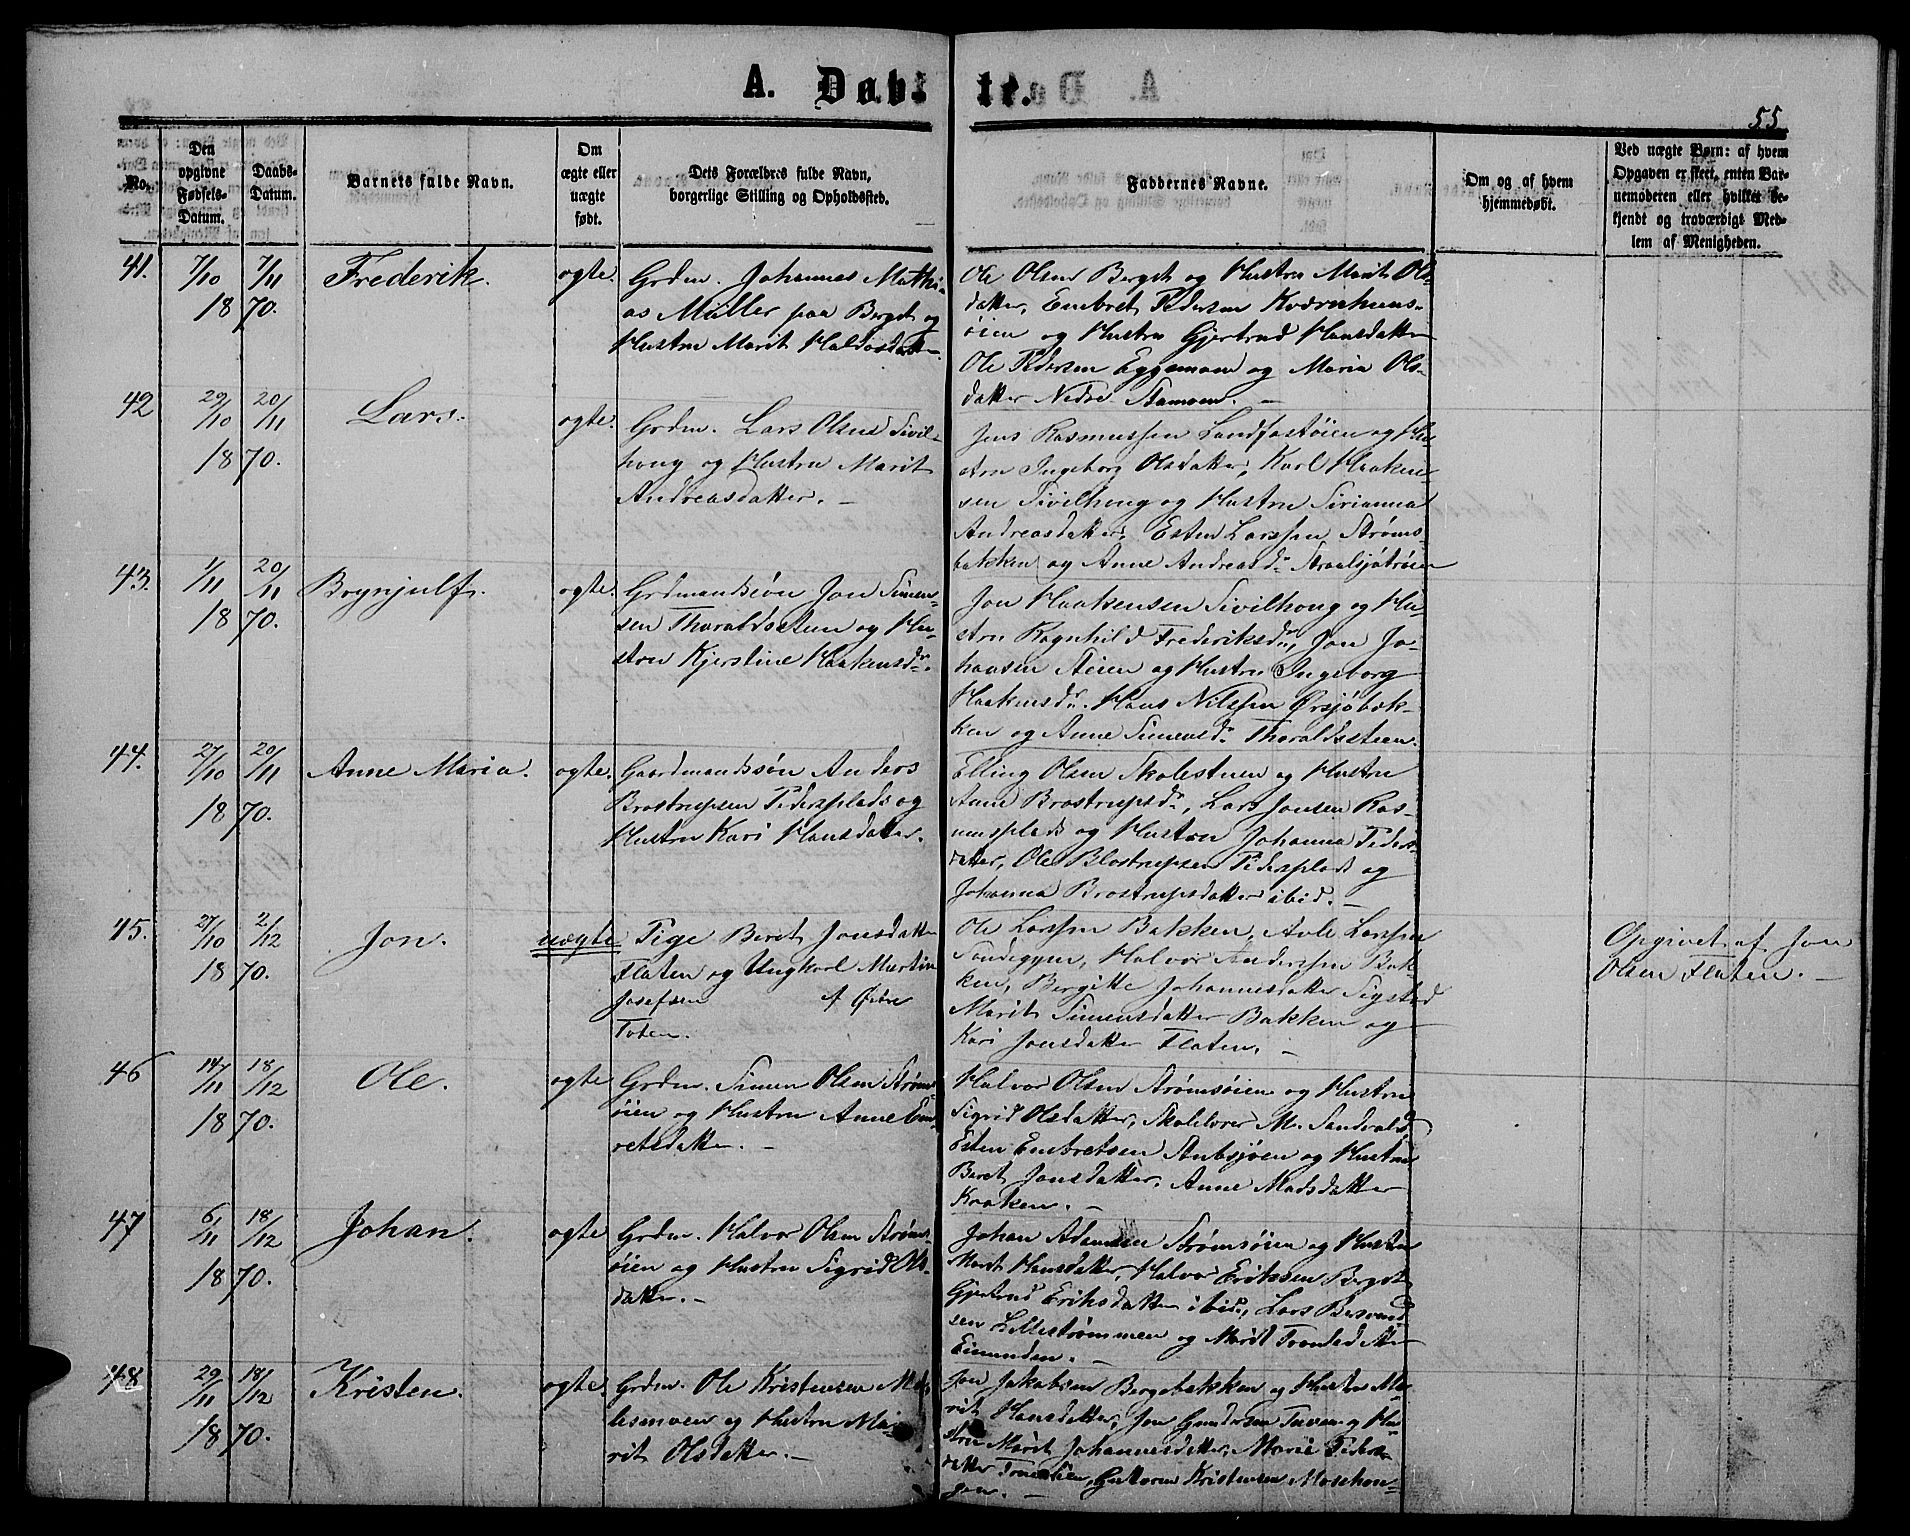 A. Døbte.
55
No.
Den opgivne Fødsels-Datum.
Daabs-Datum.
Barnets fulde Navn.
Om ægte eller uægte født.
Dets Forældres fulde Navn, borgerlige Stilling og Opholdssted.
Faddernes Navne.
Om og af hvem hjemmedøbt.
Ved uægte Børn: af hvem Opgaven er skeet, enten Barnemoderen eller hvilket bekjendt og troværdigt Medlem af Menigheden.
41. 7/10 7/11 1870. Frederik. ægte.
Grdm. Johannes Mathi-
as Müller paa Berget og
Hustru Marit Haldosdatter
Ole Olsen Berget og Hustru Marit Ols-
datter, Embret Pedersen Kværnhuus-
øien og Hustru Gjertrud Hansdatter
Ole Pedersen Eggemoen og Maria Ols-
datter Nedre Stamoen. –
42 29/10 20/11 1870. Lars. ægte.
Grdm. Lars Olsen Sivil-
hong og Hustru Marit
Andreasdatter. –
Jens Rasmussen Landfastøien og Hu-
stru Ingeborg Olsdatter, Karl Haaken-
sen Sivilhong og Hustru Sirianna
Andreasdatter, Esten Larssen Strøms-
bakken og Anne Andreasd.
43. 1/11 20/11 1870. Brynjulf. ægte.
Grdmandssøn Jon Simen-
sen Tharaldsteen og Hu-
stru Kjerstine Haakensdr.
Jon Haakensen Sivilhong og Hu-
stru Ragnhild Frederiksdr, Jon Jo-
hansen Aeien og Hustru Ingeborg
Haakensdr. Hans Nilssen Ørsjøbak-
ken og Anne Simensdr. Tharaldsteen.
44. 27/10 20/11 1870. Anne Maria. ægte.
Gaardmandssøn Anders
Brostrupsen Pedersplads og
Hustru Kari Hansdatter.
Elling Olsen Skolestuen og Hustru
Anne Brostrupsdr, Lars Jonsen Ras-
musplads og Hustru Johanna Peders-
datter, Ole Blostrupsen Pedersplads og
Johanna Brostrupsdatter ibid. –
45. 27/10 2/12 1870. Jon. uægte
Pige Beret Jonsdatter
Flaten og Ungkarl Martin
Josefsen af Østre
Toten.
Ole Larssen Bakken, Avle Larssen
Sandegyen, Halvor Anderssen Bak-
ken, Bergitte Johannesdatter Sigstad
Marit Simensdatter Bakken og
Kari Jonsdatter Flaten. –
Opgivet af Jon
Olsen Flaten. –
46 14/11 18/12 1870. Ole. ægte
Grdm. Simen Olsen Strøms-
øien og Hustru Anne Em-
retsdatter. –
Halvor Olsen Strømsøien og Hustru
Sigrid Olsdatter, Skolelærer M. Sandvold,
Esten Embretsen Aubsjøen og Hustru
Beret Jonsdatter, Anne Madsdatter
Kraaken. –
47 6/11 18/12 1870. Johan. ægte
Grdm. Halvor Olsen Strøms-
øien og Hustru Sigrid Ols-
datter. –
Johan Adamsen Strømsøien og Hustru
Marit Hansdatter, Halvor Erikssen Berget
Gjertrud Eriksdatter ibid, Lars
sen Lillestrømmen og Marit Trondsdatter
Eimunden. –
48 29/11 18/12 1870. Kristen. ægte.
Grdm. Ole Kristensen
og Hustru Ma-
rit Olsdatter. –
Jon Jakobsen Bergebakken og Hustru Ma-
rit Hansdatter, Jon Gundersen Tuven og Hu-
stru Marit Johannesdatter, Marie Peders-
datter Guttorm Kristensen Mosehon-
gen. –